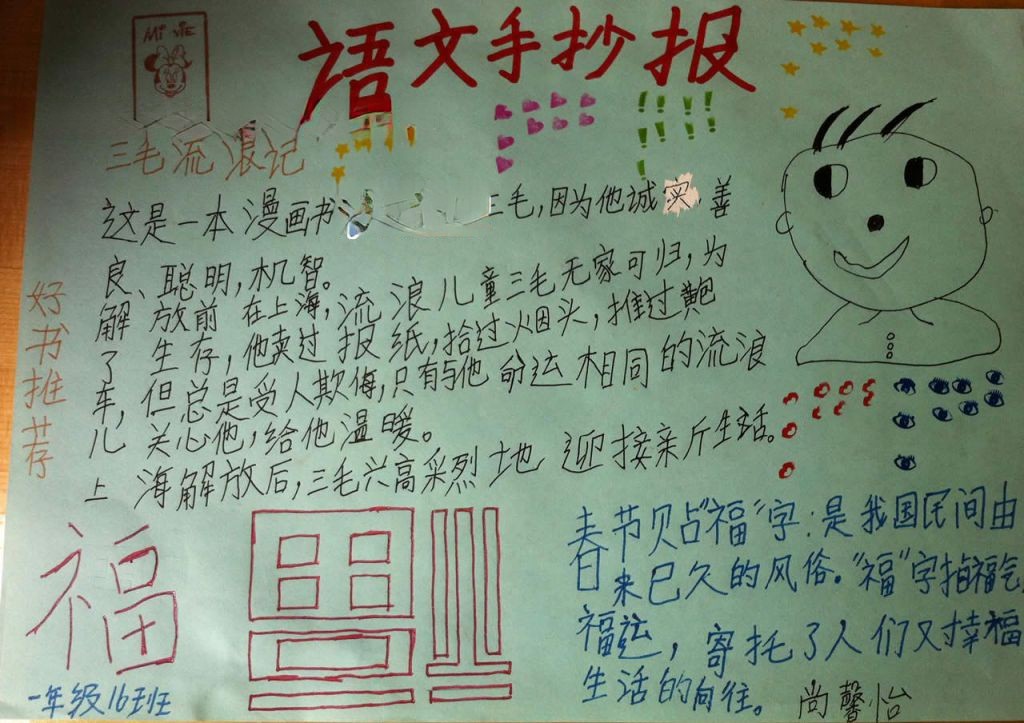 语文手抄报
Mi ViE
三毛流浪记
好书推荐
这是一本漫画书 三毛,因为他诚实、善
良、聪明,机智。
解放前在上海,流浪儿童三毛无家可归,为
了生存,他卖过报纸,拾过烟头,推过
车,但总是受人欺侮,只有与他命运相同的流浪
儿关心他,给他温暖。
上海解放后,三毛兴高采烈地迎接亲斤生活。
福
春节贴“福”字:是我国民间由
来已久的风俗。“福”字指福气,
福运,寄托了人们又幸福
生活的向往。
一年级16班
尚馨怡